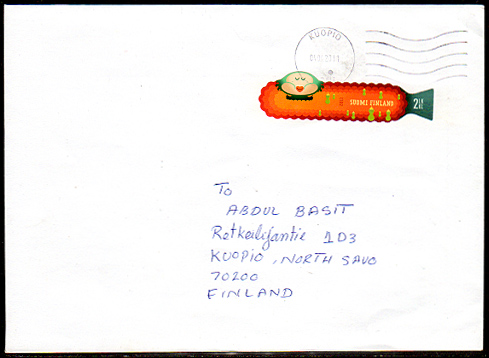 KUOPIO
SUOMI FINLAND
To
ABDUL BASIT
Retkeilijäntie 1D3
KUOPIO, NORTH SAVO
70200
FINLAND